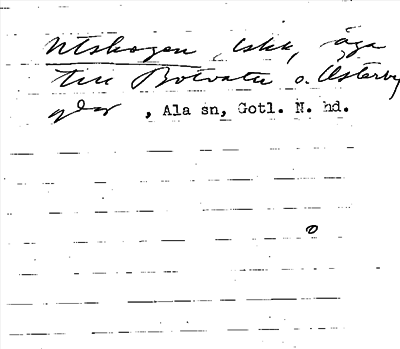 Utskogen, tskk, äga
till Botvatte o. Österby
gdar, Ala sn, Gotl. N. hd.
o